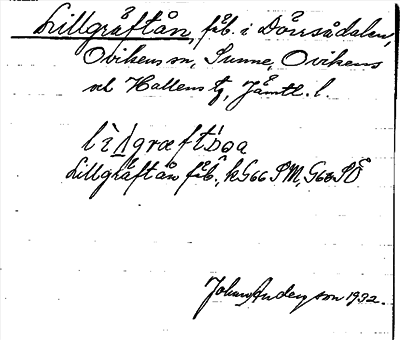 Lillgråftån, fäb. i Dörrsådalen,
Ovikens sn, Sunne, Ovikens
och Hallens tg, Jämtl. l.
Lillgråftån fäb., k G66 SM, G68 SÖ
Johan Anderson 1932.